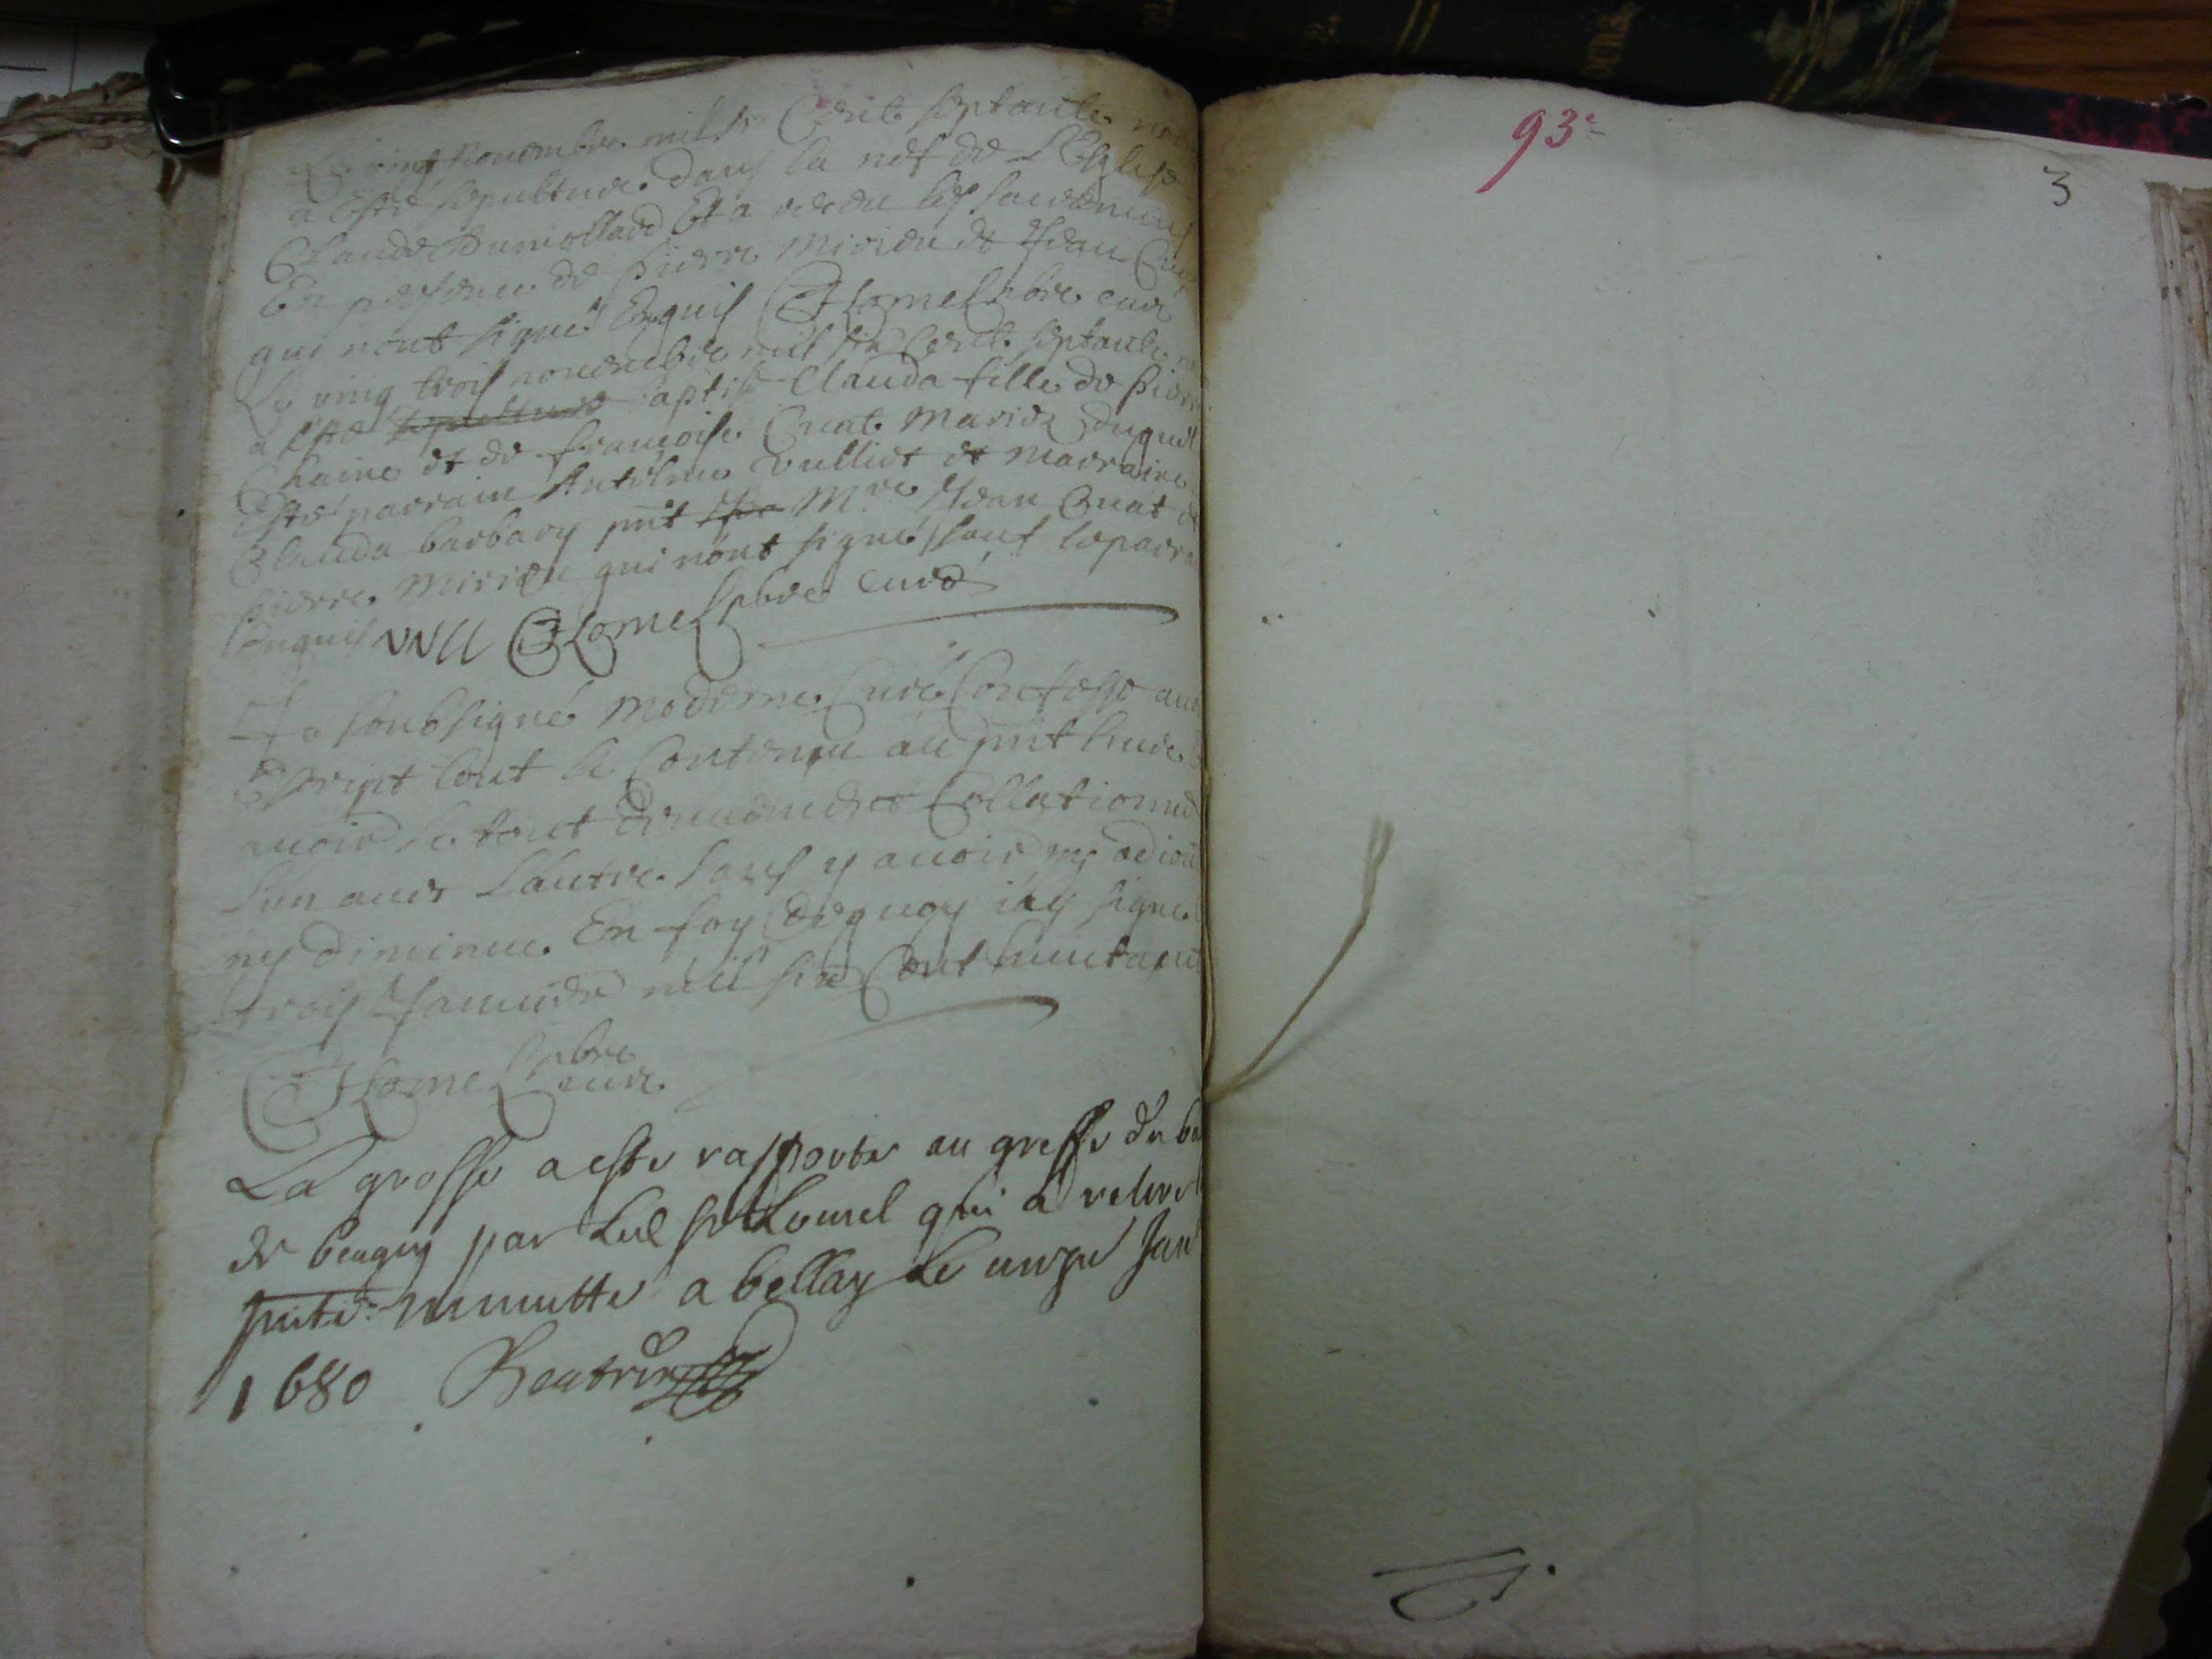 Le vingt novembre mil six Cent septante
a Esté sepulturé dans la nef de L'Eglise
Claude Dumollard Et a receu les sacremens
En presence de pierre Mirieu et Jean
qui n'ont signé Enquis Lomel pbre curé
Le ving trois novembre mil six Cent septante
a esté baptisé Clauda fille de pierre
Chaine et de françoise Cuat mariez duquel
Esté parrain Antelme vulliet et marraine
Clauda barbary pnt Mre Jean Cuat et
pierre Mirieu qui n'ont signé sauf le parra
Enquis Vull Lomel pbre curé
Je soubsigné moderne Curé Confesse avoir
Escript tout le Contenu au pnt livre
avoir le tout Collationné
l'un avec Lautre sans y avoir ny adiou
ny diminue. En foy dequoy iay signé
trois Janvier mil six Cent huictante
Lomel pbre
cure
La grosse a este rapportee au greffe du ba
de beugey par led sr Lomel qui a retiré
pnte minutte a bellay le unze Jan
1680 Beatrix
93e
3